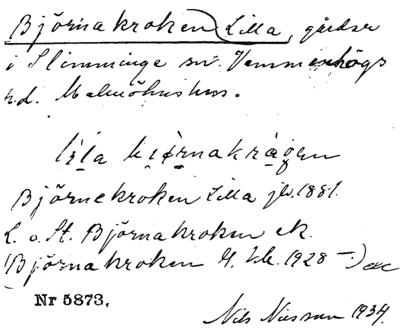 Björnakroken Lilla, gårdar
i Slimminge sn. Vemmenhögs
hd. Malmöhus län.
lila bjørnakrågen
Björnekroken Lilla jb. 1881.
L. o. St. Björnakroken ek.
(Björnakroken G. kb. 1928 –)
Nr 5873.
Nils Nilsson 1934.